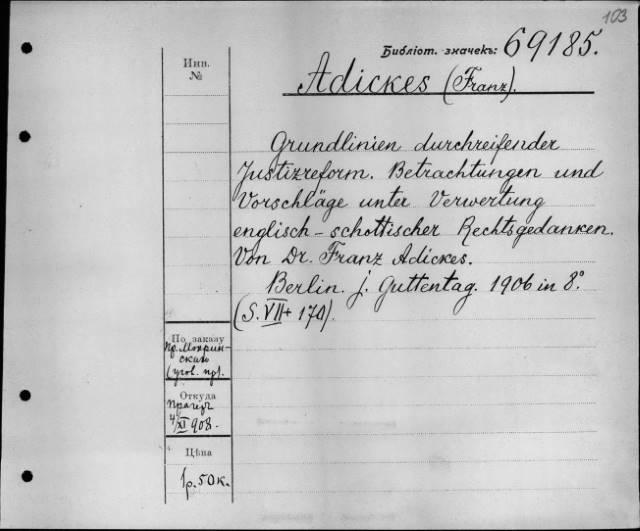 103
Библіот. значекъ: 69185.
Инв.
№
Adickes (Franz).
Grundlinien durchreifender
Justizreform. Betrachtungen und
Vorschläge unter Verwertung
englisch-schottischer Rechtsgedanken.
Von Dr. Franz Adickes.
Berlin. J. Guttentag. 1906 in 8°
(S. VII + 170).
По заказу
(угол. пр).
Откуда
4/XI 908.
Цѣна
1р. 50к.